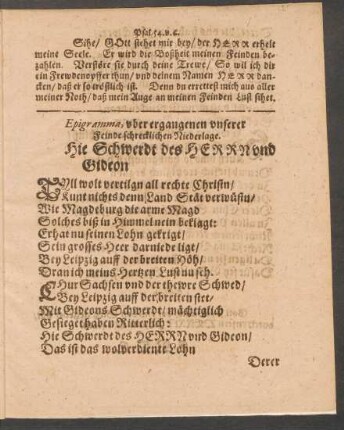 Psal. 54. v. 6.
Sihe/ GOtt stehet mir bey/ der HERR erhelt
meine Seele. Er wird die Boßheit meinen Feinden be-
zahlen. Verstöre sie durch deine Trewe/ So wil ich dir
ein Frewdenopffer thun/ vnd deinem Namen HERR dan-
cken/ daß er so tröstlich ist. Denn du errettest mich aus aller
meiner Noth/ daß mein Auge an meinen Feinden Lust sihet.
Epigramma, vber ergangenen vnserer
Feinde schrecklichen Niederlage.
Hie Schwerdt des HERRN vnd
Gideon
TYll wolt vertilgn all rechte Christn/
Kunt nichts denn Land Stät verwüstn/
Wie Magdeburg die arme Magd
Solches biß in Himmel nein beklagt:
Er hat nu seinen Lohn gekrigt/
Sein grosses Heer darniede ligt/
Bey Leipzig auff der breiten Höh/
Dran ich meins Hertzen Lust nu seh.
CHur Sachsen vnd der thewre Schwed/
Bey Leipzig auff der breiten stet/
Mit Gideons Schwerdt/ mächtiglich
Gesieget haben Ritterlich:
Hie Schwerdt des HERRN vnd Gideon/
Das ist das wolverdiente Lohn
Derer